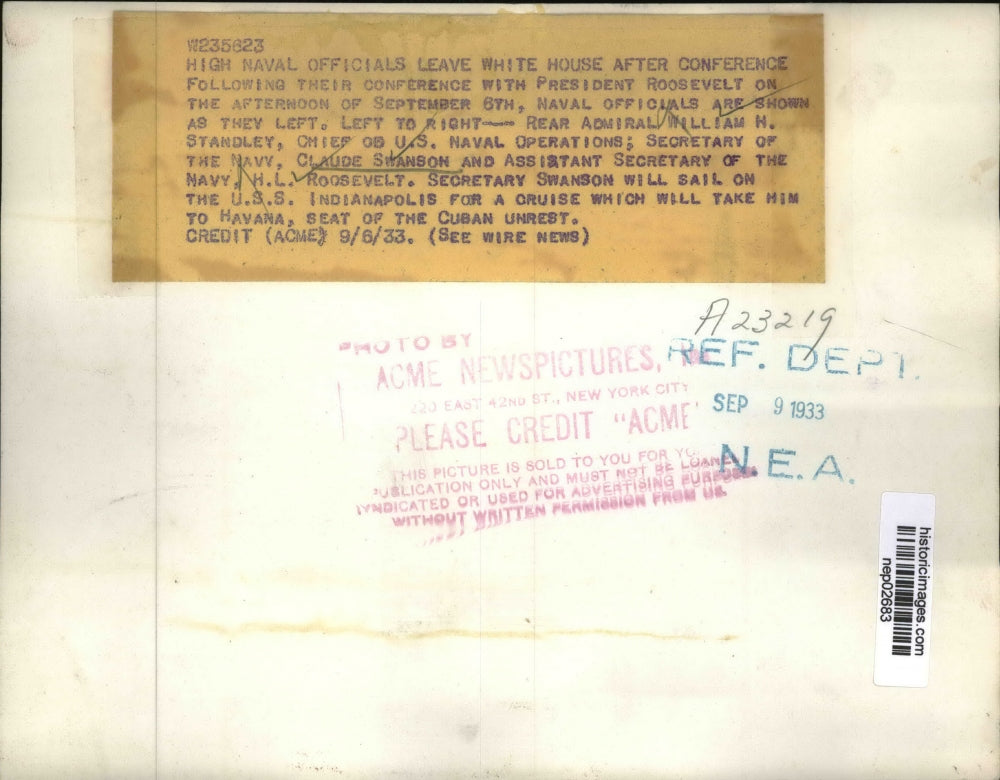 W235623
HIGH NAVAL OFFICIALS LEAVE WHITE HOUSE AFTER CONFERENCE
FOLLOWING THEIR CONFERENCE WITH PRESIDENT ROOSEVELT ON
THE AFTERNOON OF SEPTEMBER 6TH, NAVAL OFFICIALS ARE SHOWN
AS THEY LEFT. LEFT TO RIGHT-- REAR ADMIRAL WILLIAM H.
STANDLEY, CHIEF OB U.S. NAVAL OPERATIONS; SECRETARY OF
THE NAVY, CLAUDE SWANSON AND ASSISTANT SECRETARY OF THE
NAVY, H.L. ROOSEVELT. SECRETARY SWANSON WILL SAIL ON
THE U.S.S. INDIANAPOLIS FOR A CRUISE WHICH WILL TAKE HIM
TO HAVANA, SEAT OF THE CUBAN UNREST.
CREDIT (ACME) 9/6/33. (SEE WIRE NEWS)
A23219
PHOTO BY
ACME NEWSPICTURES,
220 EAST 42ND ST., NEW YORK CITY
PLEASE CREDIT "ACME"
THIS PICTURE IS SOLD TO YOU FOR
PUBLICATION ONLY AND MUST NOT BE LOANED
SYNDICATED OR USED FOR ADVERTISING PURPOSES
WITHOUT WRITTEN PERMISSION FROM US.
REF. DEPT.
SEP 9 1933
N.E.A.
historicimages.com
nep02683